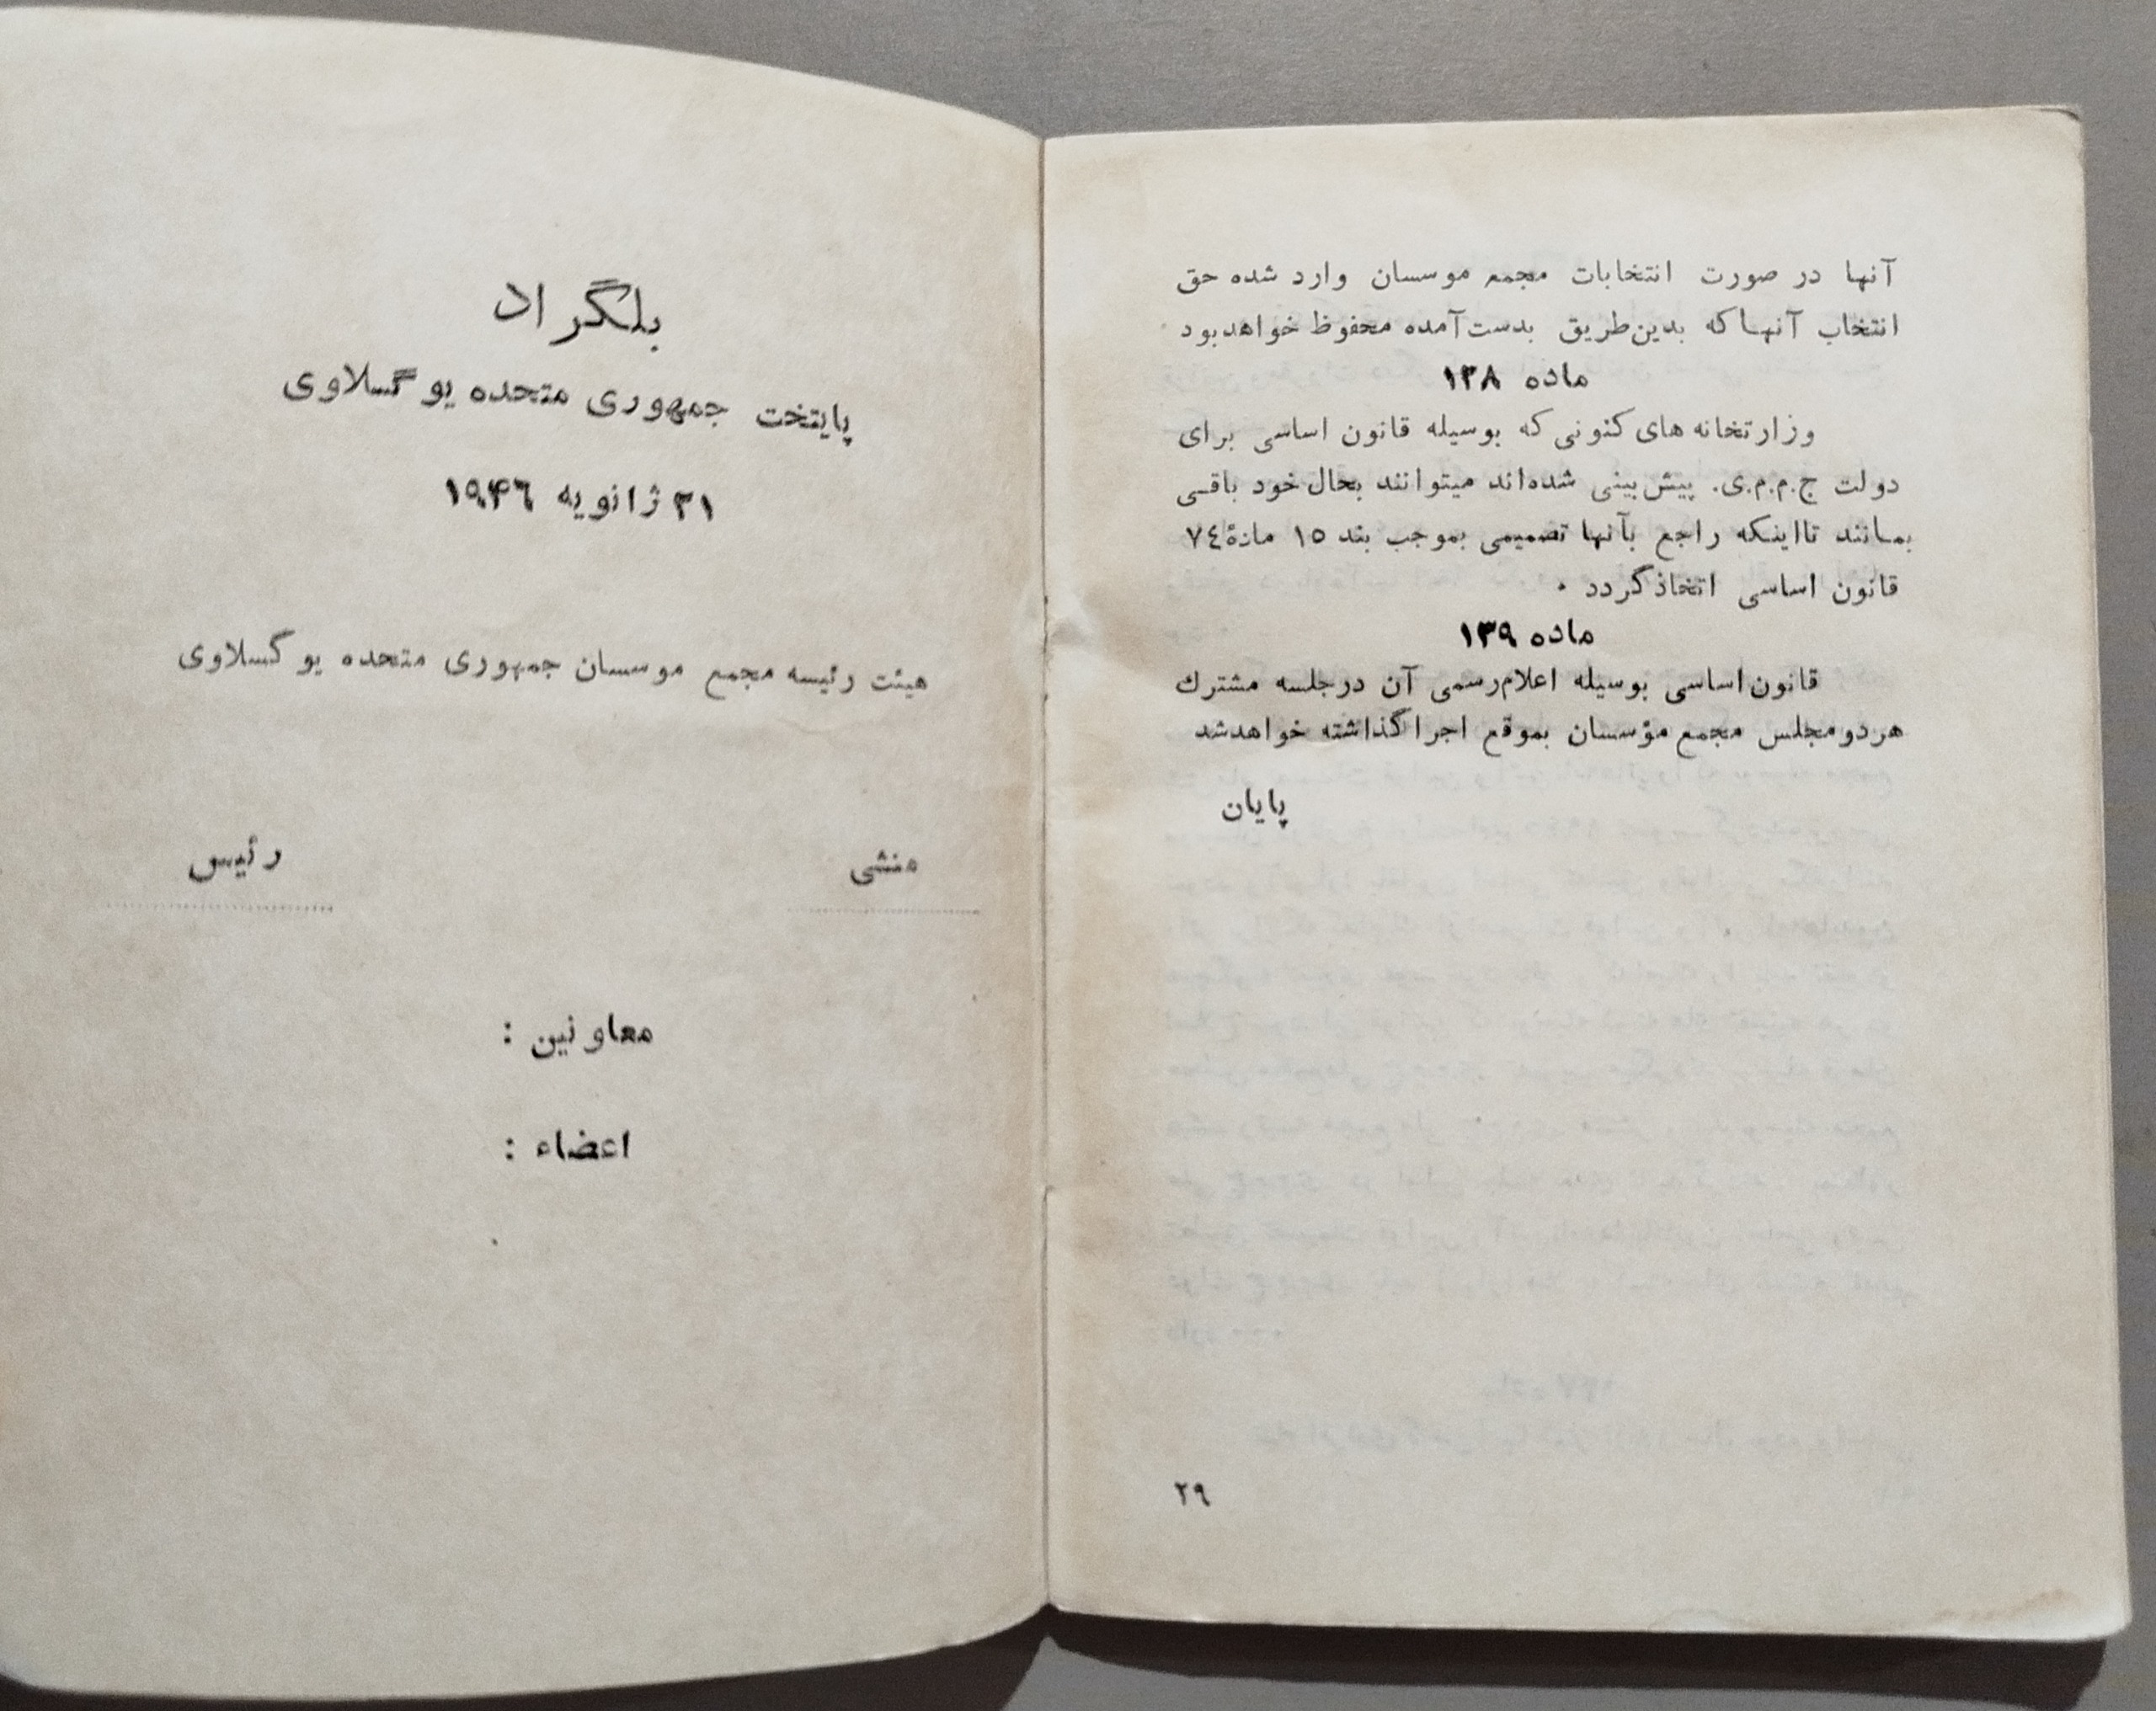 آنها در صورت انتخابات مجمع موسسان وارد شده حق
انتخاب آنها که بدین‌طریق بدست‌آمده محفوظ خواهد بود
ماده ۱۳۸
وزارتخانه های کنونی که بوسیله قانون اساسی برای
دولت ج.م.م.ی. پیش‌بینی شده‌اند میتوانند بحال خود باقی
بمانند تااینکه راجع بآنها تصمیمی بموجب بند ۱۵ مادهٔ ۷٤
قانون اساسی اتخاذ گردد .
ماده ۱۳۹
قانون اساسی بوسیله اعلام‌رسمی آن در جلسه مشترك
هر دو مجلس مجمع مؤسسان بموقع اجرا گذاشته خواهد شد
پایان
۲۹
بلگراد
پایتخت جمهوری متحده یوگسلاوی
۳۱ ژانویه ۱۹۴۶
هیئت رئیسه مجمع موسسان جمهوری متحده یوگسلاوی
منشی رئیس
معاونین :
اعضاء :